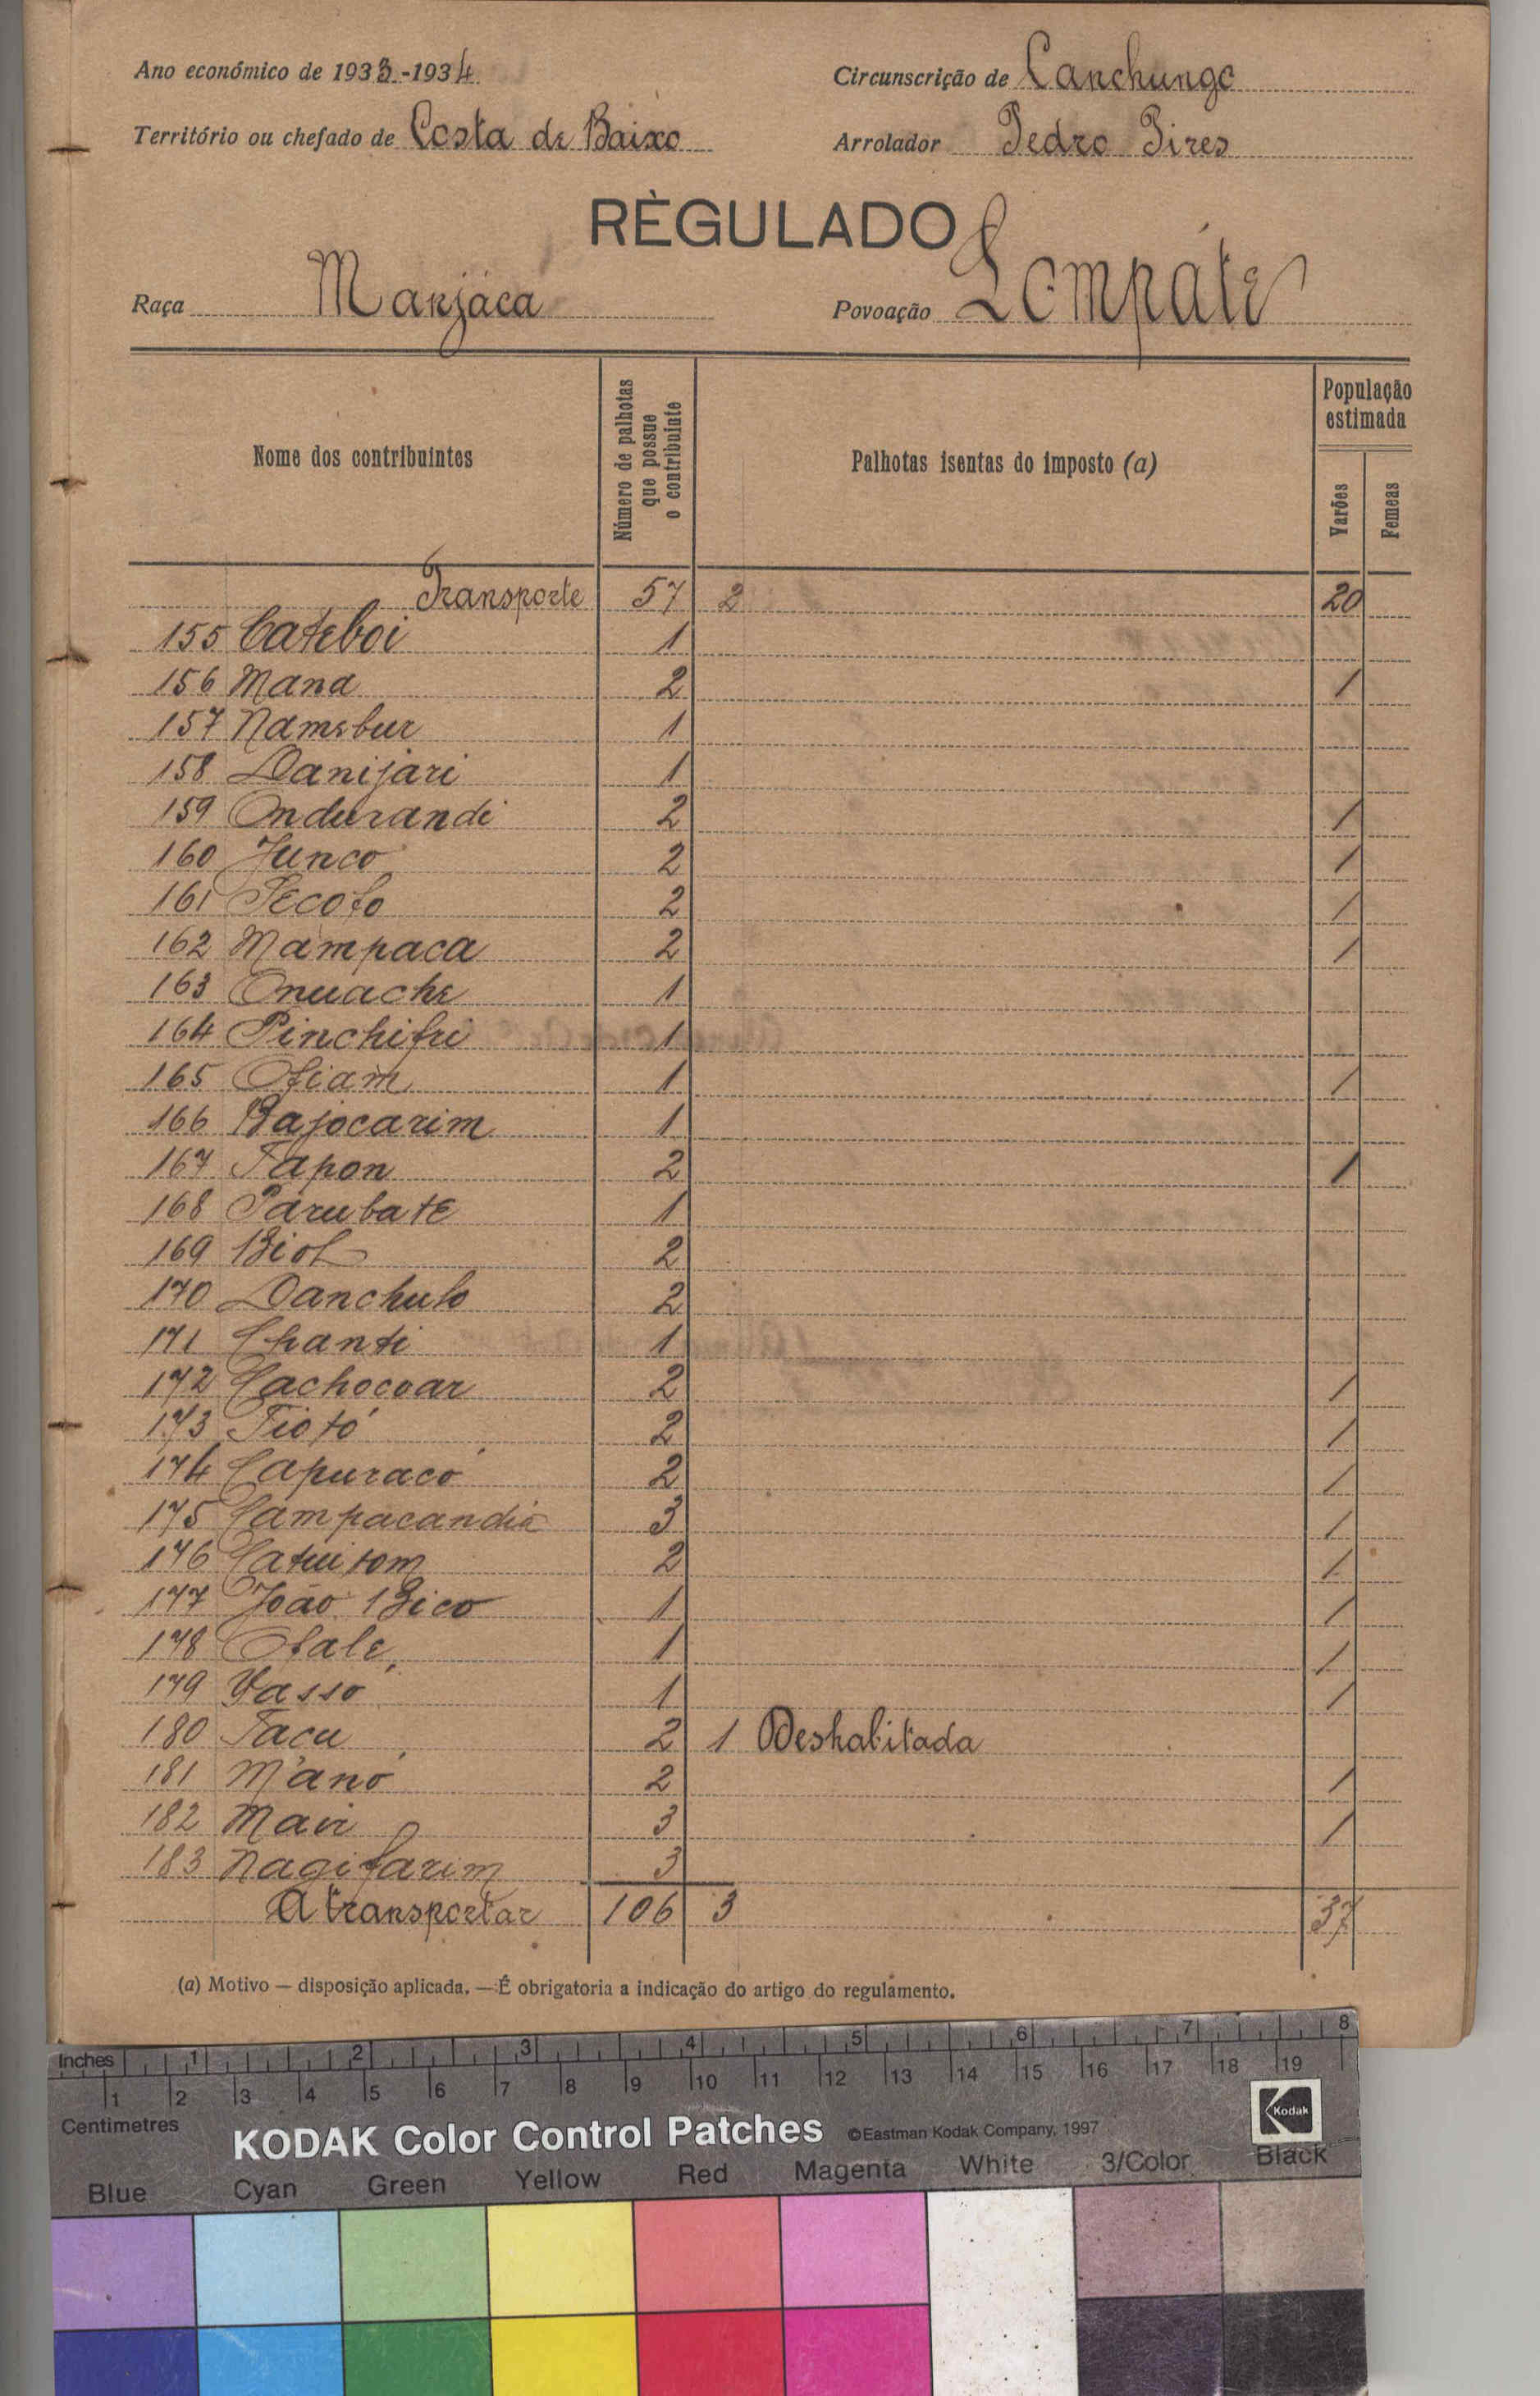 Ano económico de 1933-1934 Circunscrição de Canchungo
Território ou chefado de Costa de Baixo Arrolador Pedro Pires
RÈGULADO
Raça Manjáca Povoação Lempáte
Nome dos contribuintes Número de palhotas que possue o contribuinte Palhotas isentas do imposto (a) População estimada Varões Femeas
Transporte 57 2 20
155 Cateboi 1
156 Mana 2 /
157 Namebur 1
158 Danijari 1
159 Ondurandi 2 /
160 Junco 2 /
161 Pecoto 2 /
162 Mampaca 2 /
163 Onuache 1
164 Pinchifri 1
165 Ofiam 1 /
166 Bajocarim 1
167 Tapon 2 /
168 Parubate 1
169 Biof 2
170 Danchulo 2
171 Chanti 1
172 Cachocoar 2 /
173 Tiotó 2 /
174 Capuracó 2 /
175 Campacandiá 3 /
176 Catuitom 2 /
177 João Bico 1 /
178 Ofale 1 /
179 Vassó 1 /
180 Tacu 2 1 Deshabitada
181 M'anó 2 /
182 Mair 3 /
183 Nagifarim 3
A transportar 106 3 37
(a) Motivo — disposição aplicada. — É obrigatoria a indicação do artigo do regulamento.
Inches 1 2 3 4 5 6 7 8
1 2 3 4 5 6 7 8 9 10 11 12 13 14 15 16 17 18 19
Centimetres
KODAK Color Control Patches ©Eastman Kodak Company, 1997 Kodak
Blue Cyan Green Yellow Red Magenta White 3/Color Black